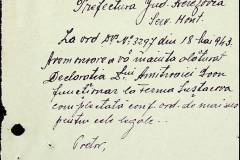 Prefectura Jud. Berezovca
Serv. Cont.
La ord. Dv. Nr. 3297 din 18 Mai 1943.
am onoare a vă înainta alăturat
Declarația D-lui Dimitrovici Ioan
funcționar la ferma Suștacova
completată conf. ord. de mai sus
pentru cele legale...
Pretor,